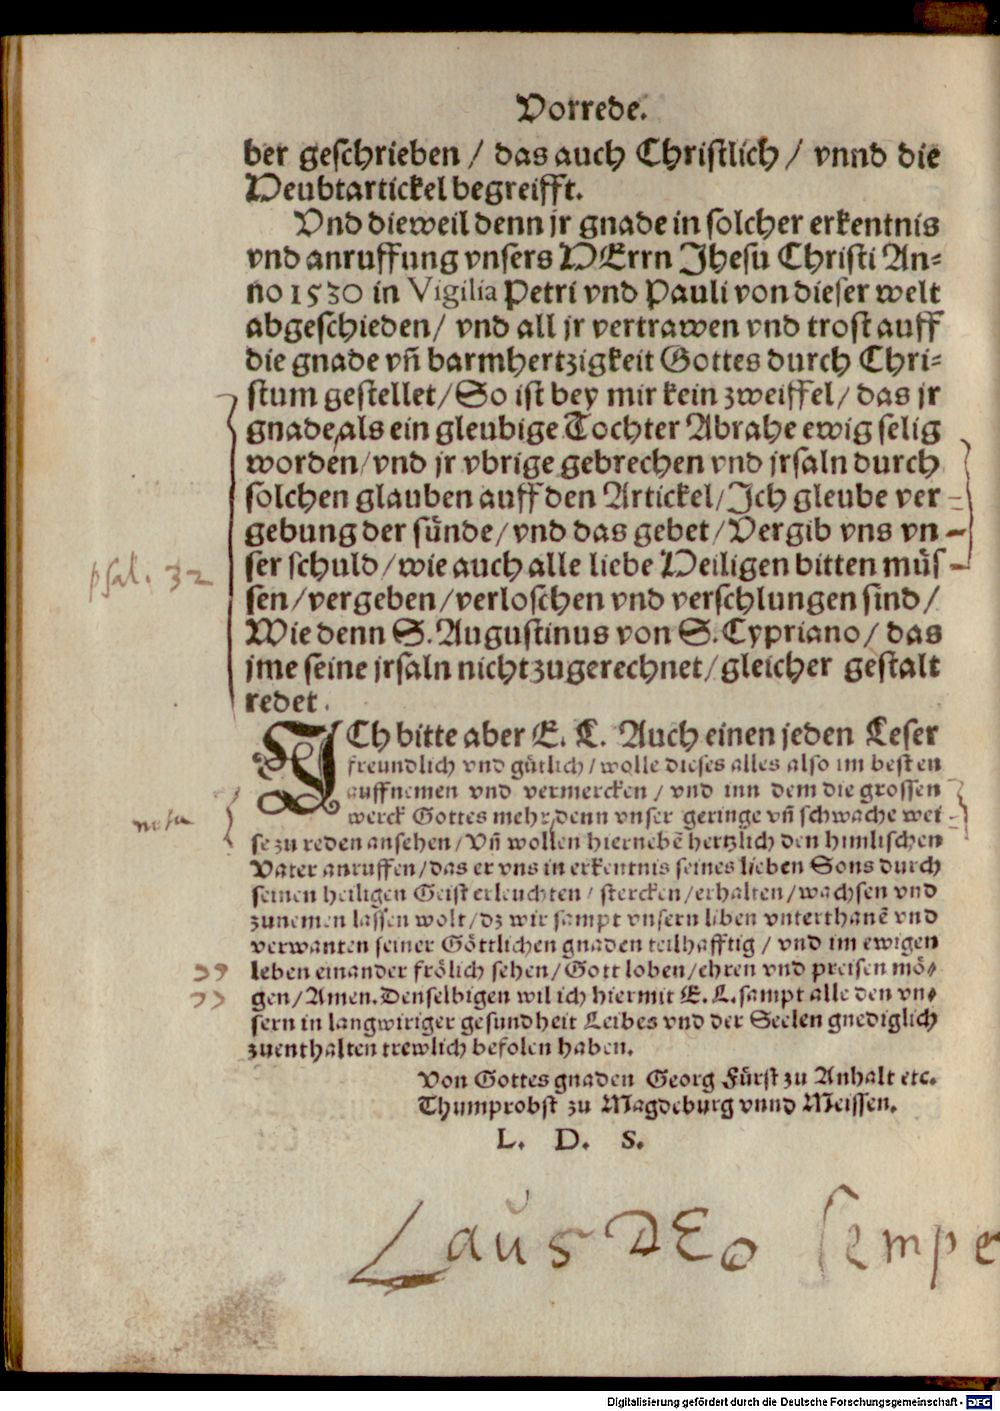 Vorrede.
ber geschrieben / das auch Christlich / vnnd die
Heubtartickel begreifft.
Vnd dieweil denn jr gnade in solcher erkentnis
vnd anruffung vnsers HErrn Jhesu Christi An=
no 1530 in Vigilia Petri vnd Pauli von dieser welt
abgeschieden / vnd all jr vertrawen vnd trost auff
die gnade vñ barmhertzigkeit Gottes durch Chri=
stum gestellet / So ist bey mir kein zweiffel / das jr
gnade, als ein gleubige Tochter Abrahe ewig selig
worden / vnd jr vbrige gebrechen vnd jrsaln durch
solchen glauben auff den Artickel / Ich gleube ver=
gebung der sünde / vnd das gebet / Vergib vns vn=
psal. 32 ser schuld / wie auch alle liebe Heiligen bitten müs=
sen / vergeben / verloschen vnd verschlungen sind /
Wie denn S. Augustinus von S. Cypriano / das
jme seine jrsaln nicht zugerechnet / gleicher gestalt
redet.
ICh bitte aber E. L. Auch einen jeden Leser
freundlich vnd gütlich / wolle dieses alles also im besten
auffnemen vnd vermercken / vnd inn dem die grossen
nota werck Gottes mehr, denn vnser geringe vñ schwache wei=
se zu reden ansehen / Vñ wollen hiernebē hertzlich den himlischen
Vater anruffen / das er vns in erkentnis seines lieben Sons durch
seinen heiligen Geist erleuchten / stercken / erhalten / wachsen vnd
zunemen lassen wolt / dz wir sampt vnsern liben vnterthanē vnd
verwanten seiner Göttlichen gnaden teilhafftig / vnd im ewigen
leben einander frölich sehen / Gott loben / ehren vnd preisen mö=
gen / Amen. Denselbigen wil ich hiermit E. L. sampt alle den vn=
sern in langwiriger gesundheit Leibes vnd der Seelen gnediglich
zuenthalten trewlich befolen haben.
Von Gottes gnaden Georg Fürst zu Anhalt etc.
Thumprobst zu Magdeburg vnnd Meissen.
L. D. S.
Laus DEo sempe
Digitalisierung gefördert durch die Deutsche Forschungsgemeinschaft - DFG